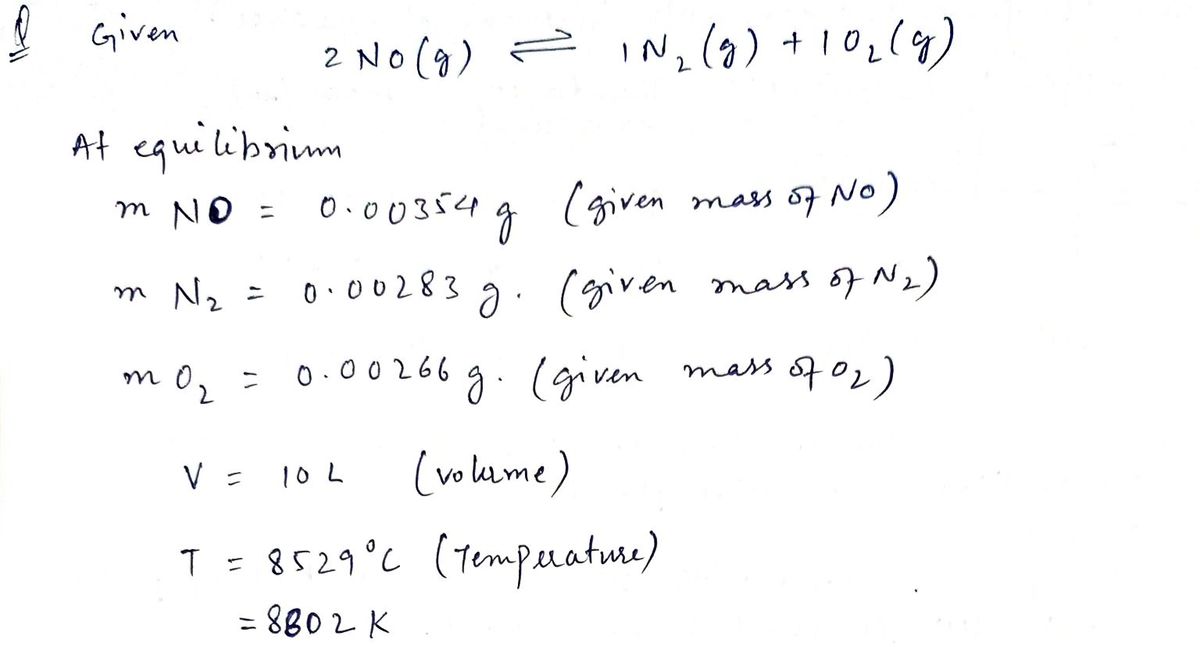 Q Given
2 NO(g) ⇌ 1 N₂(g) + 1 O₂(g)
At equilibrium
m NO = 0.00354 g (given mass of NO)
m N₂ = 0.00283 g. (given mass of N₂)
m O₂ = 0.00266 g. (given mass of O₂)
V = 10 L (volume)
T = 8529°C (Temperature)
= 8802 K